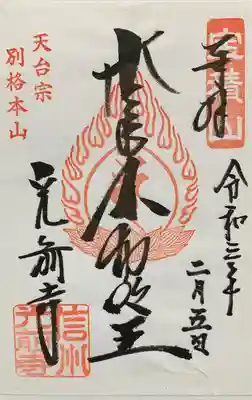 宝積山
奉拝
令和三年
二月五日
大聖不動明王
天台宗
別格本山
光前寺
信州
光前寺